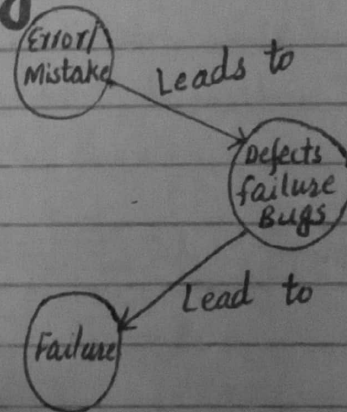 Error/
Mistake
Leads to
Defects
failure
Bugs
Lead to
Failure